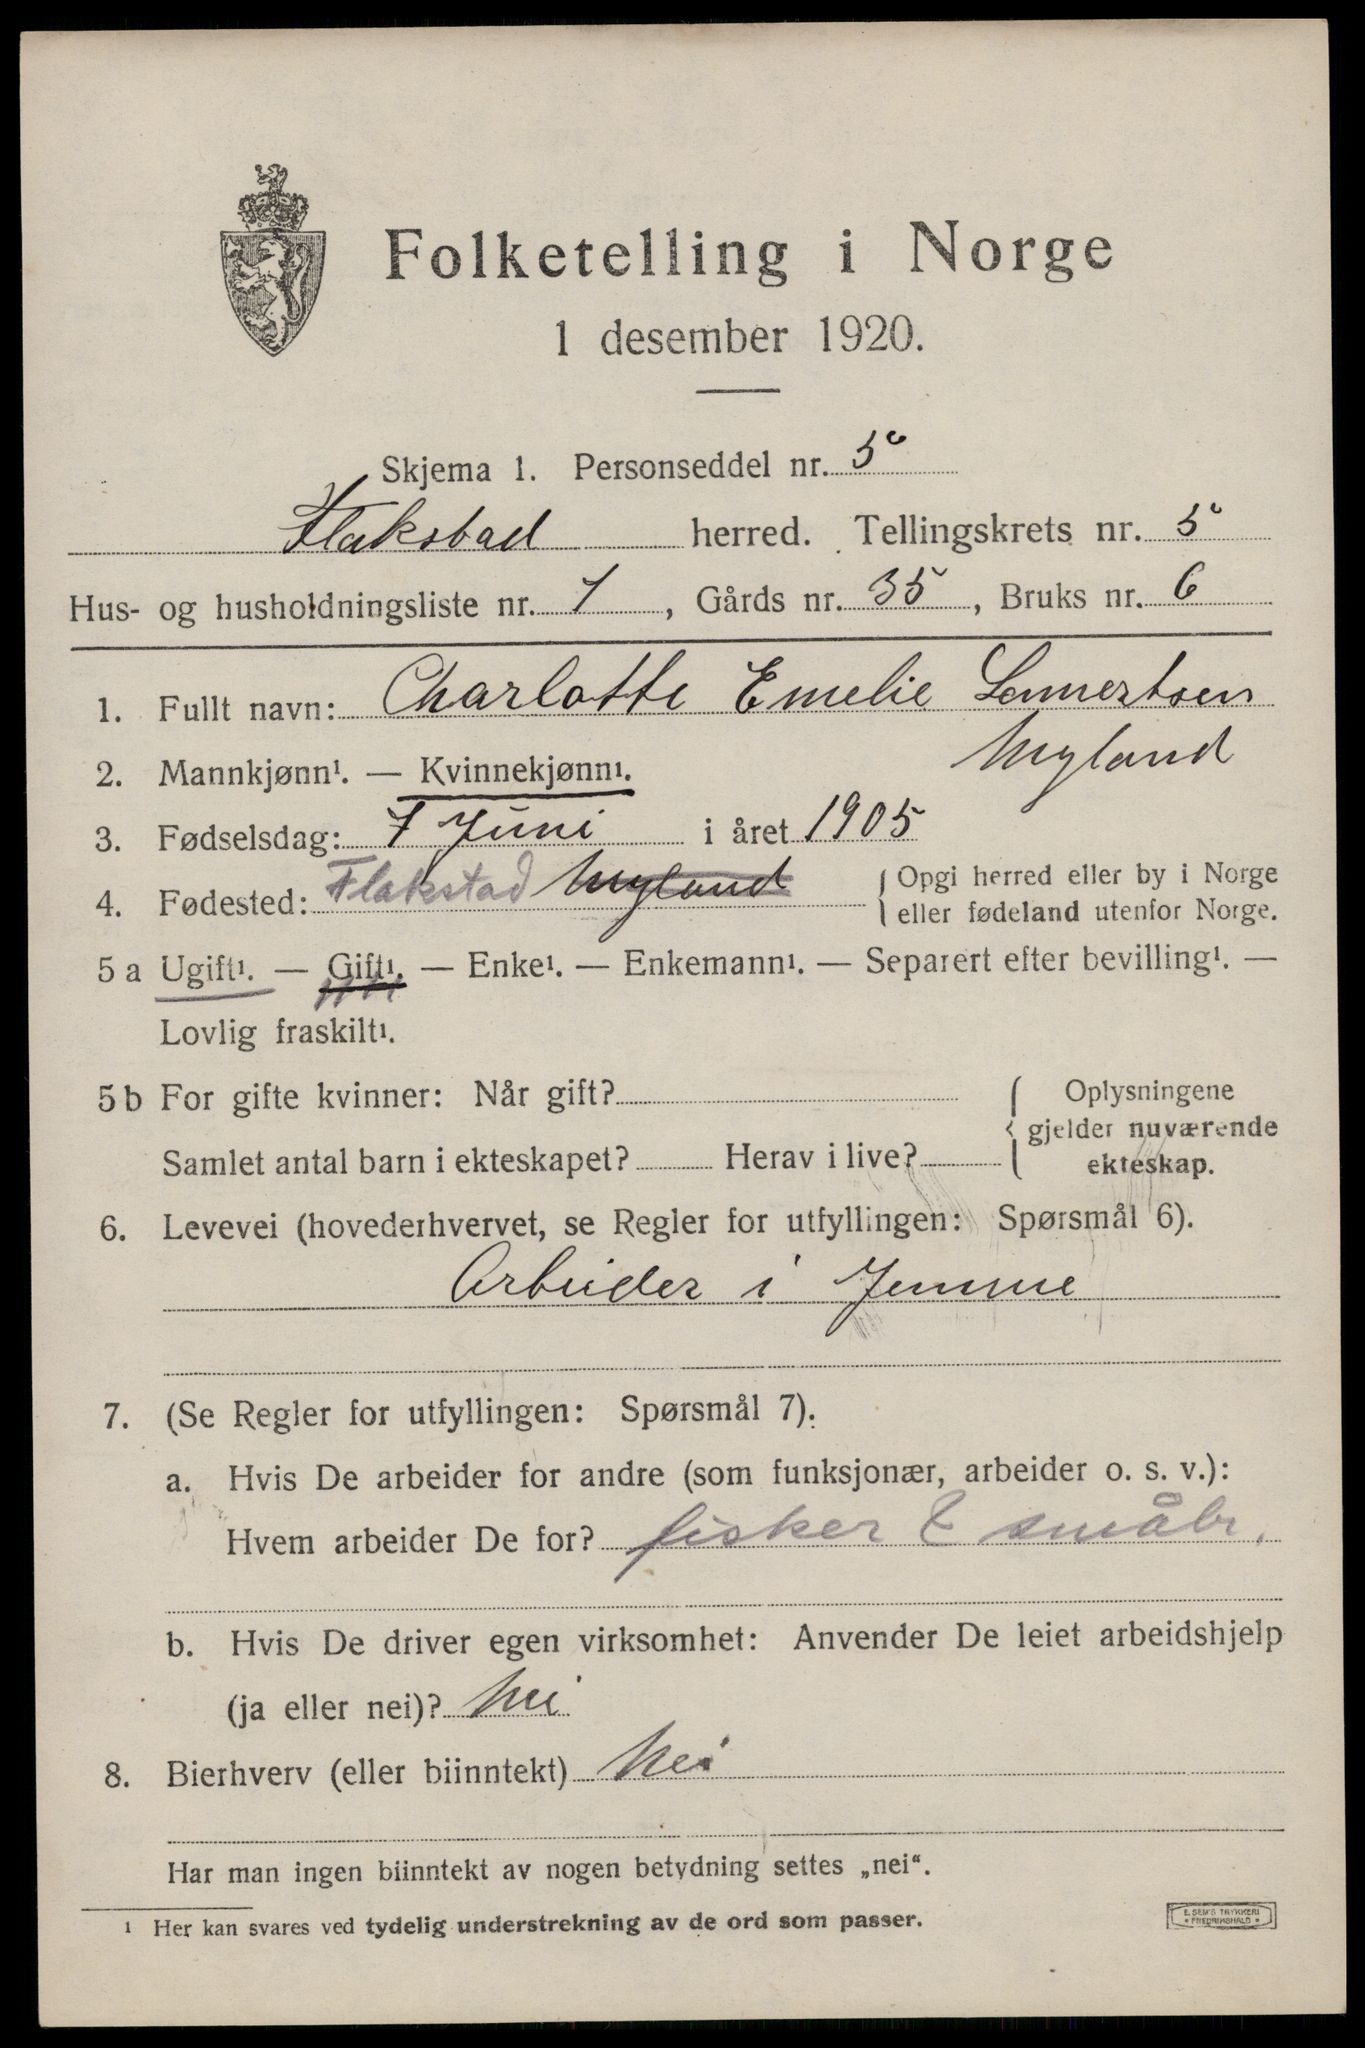 Folketelling i Norge
1 desember 1920.
Skjema 1. Personseddel nr. 5
Flakstad herred. Tellingskrets nr. 5
Hus- og husholdningsliste nr. 7, Gårds nr. 35, Bruks nr. 6
1. Fullt navn: Charlotte Emelie Lennertsen
Nyland
2. Mannkjønn¹. — Kvinnekjønn¹.
3. Fødselsdag: 7 Juni i året 1905
4. Fødested: Flakstad Nyland { Opgi herred eller by i Norge
eller fødeland utenfor Norge.
5 a Ugift¹. — Gift¹. — Enke¹. — Enkemann¹. — Separert efter bevilling¹. —
Lovlig fraskilt¹.
5 b For gifte kvinner: Når gift? { Oplysningene
gjelder nuværende
Samlet antal barn i ekteskapet? Herav i live? ekteskap.
6. Levevei (hovederhvervet, se Regler for utfyllingen: Spørsmål 6).
Arbeider i Jemme
7. (Se Regler for utfyllingen: Spørsmål 7).
a. Hvis De arbeider for andre (som funksjonær, arbeider o. s. v.):
Hvem arbeider De for? fisker & småbr.
b. Hvis De driver egen virksomhet: Anvender De leiet arbeidshjelp
(ja eller nei)? Nei
8. Bierhverv (eller biinntekt) Nei
Har man ingen biinntekt av nogen betydning settes „nei“.
¹ Her kan svares ved tydelig understrekning av de ord som passer.
E. SEM'S TRYKKERI
* FREDRIKSHALD *